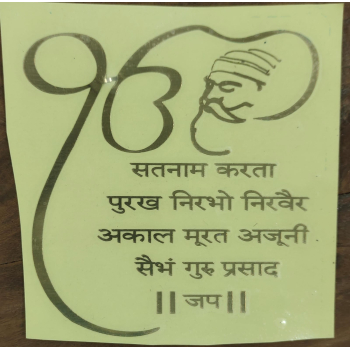 ੴ
सतनाम करता
पुरख निरभो निरवैर
अकाल मूरत अजूनी
सैभं गुरु प्रसाद
||जप||